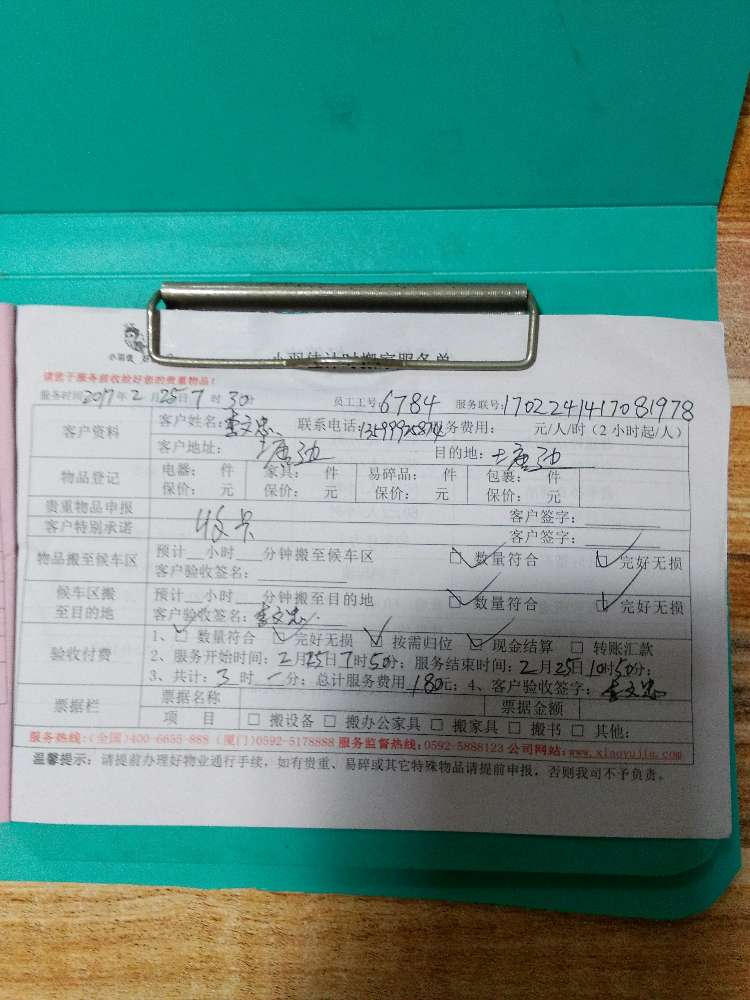 小羽佳计时搬家服务单
请您于服务前收拾好您的贵重物品！
服务时间2017年2月25日7时30分 员工工号6784 服务联号:1702241417081978
客户资料 客户姓名:李文忠 联系电话:13599925874 服务费用: 元/人/时(2小时起/人)
客户地址: 塘边 目的地:
物品登记 电器: 件 家具: 件 易碎品: 件 包裹: 件
保价: 元 保价: 元 保价: 元 保价: 元
贵重物品申报 客户签字:
客户特别承诺 收卡 客户签字:
物品搬至候车区 预计 小时 分钟搬至候车区 ☑ 数量符合 ☑ 完好无损
客户验收签名:
候车区搬 预计 小时 分钟搬至目的地 ☑ 数量符合 ☑ 完好无损
至目的地 客户验收签名:李文忠
验收付费 1、☑ 数量符合 ☑ 完好无损 ☑ 按需归位 ☑ 现金结算 □ 转账汇款
2、服务开始时间:2月25日7时50分; 服务结束时间:2月25日10时50分;
3、共计:3时一分; 总计服务费用180元; 4、客户验收签字:李文忠
票据栏 票据名称 票据金额
项 目 □ 搬设备 □ 搬办公家具 □ 搬家具 □ 搬书 □ 其他:
服务热线:(全国)400-6655-888 (厦门)0592-5178888 服务监督热线:0592-5888123 公司网站:www.xiaoyujia.com
温馨提示: 请提前办理好物业通行手续, 如有贵重、易碎或其它特殊物品请提前申报, 否则我司不予负责。